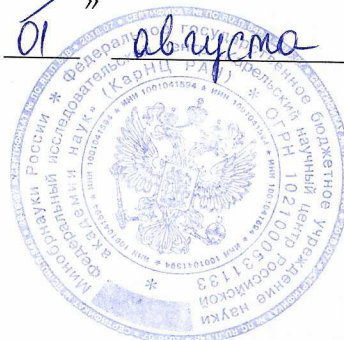 01 " августа
Минобрнауки России * Федеральное государственное бюджетное учреждение науки
Федеральный исследовательский центр "Карельский научный центр Российской
академии наук" (КарНЦ РАН) * ОГРН 1021000531133
* ИНН 1001041594 * ИНН 1001041594 * ИНН 1001041594 * ИНН 1001041594